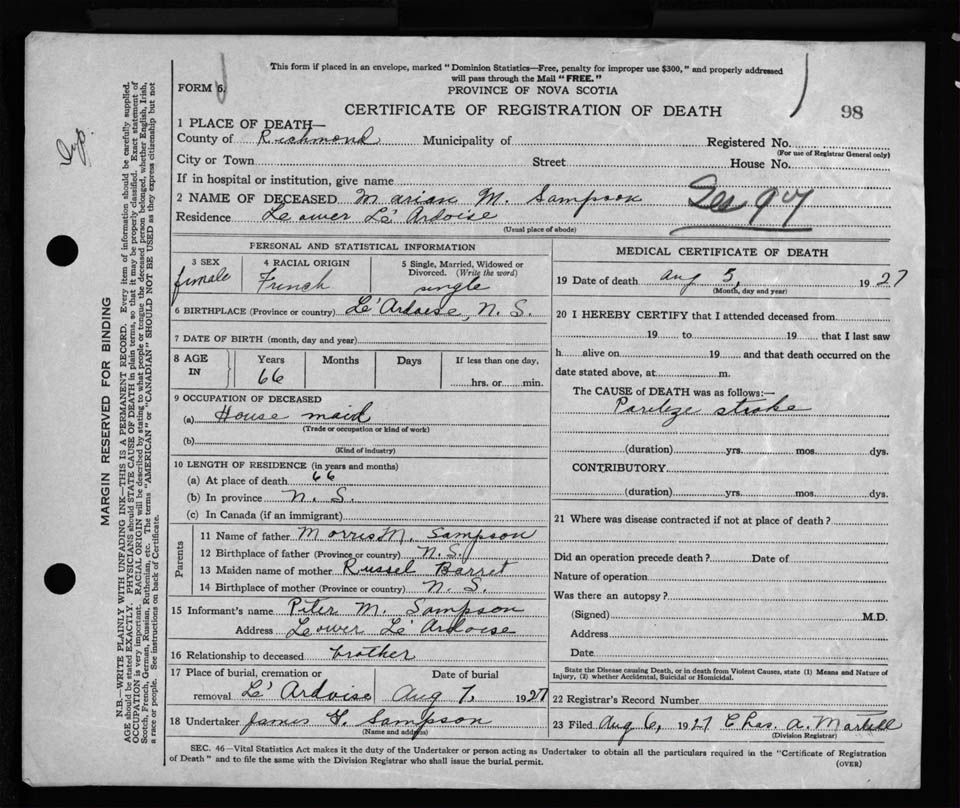 This form if placed in an envelope, marked "Dominion Statistics—Free, penalty for improper use $300," and properly addressed
will pass through the Mail "FREE."
FORM 5.
PROVINCE OF NOVA SCOTIA
CERTIFICATE OF REGISTRATION OF DEATH
98
1 PLACE OF DEATH—
County of Richmond Municipality of Registered No.
(For use of Registrar General only)
City or Town Street House No.
If in hospital or institution, give name
2 NAME OF DECEASED Marian M. Sampson
See 97
Residence Leower Le' Ardoise
(Usual place of abode)
PERSONAL AND STATISTICAL INFORMATION
3 SEX 4 RACIAL ORIGIN 5 Single, Married, Widowed or
Divorced. (Write the word)
female French single
6 BIRTHPLACE (Province or country) Le'Ardoise, N. S.
7 DATE OF BIRTH (month, day and year)
8 AGE IN Years Months Days If less than one day,
66 hrs. or min.
9 OCCUPATION OF DECEASED
(a) House maid
(Trade or occupation or kind of work)
(b)
(Kind of industry)
10 LENGTH OF RESIDENCE (in years and months)
(a) At place of death 66
(b) In province N. S.
(c) In Canada (if an immigrant)
Parents
11 Name of father Morris M. Sampson
12 Birthplace of father (Province or country) N. S.
13 Maiden name of mother Russel Barret
14 Birthplace of mother (Province or country) N. S.
15 Informant's name Piter M. Sampson
Address Leower Le' Ardoise
16 Relationship to deceased brother
17 Place of burial, cremation or Date of burial
removal Le' Ardoise Aug 7, 1927
18 Undertaker James G. Sampson
(Name and address)
MEDICAL CERTIFICATE OF DEATH
19 Date of death Aug 5, 1927
(Month, day and year)
20 I HEREBY CERTIFY that I attended deceased from
19 to 19 that I last saw
h alive on 19 and that death occurred on the
date stated above, at m.
The CAUSE of DEATH was as follows:—
Paritize stroke
(duration) yrs. mos. dys.
CONTRIBUTORY
(duration) yrs. mos. dys.
21 Where was disease contracted if not at place of death?
Did an operation precede death? Date of
Nature of operation
Was there an autopsy?
(Signed) M.D.
Address
Date
State the Disease causing Death, or in death from Violent Causes, state (1) Means and Nature of
Injury, (2) whether Accidental, Suicidal or Homicidal.
22 Registrar's Record Number
23 Filed Aug 6, 1927 Chas. A. Martell
(Division Registrar)
SEC. 46—Vital Statistics Act makes it the duty of the Undertaker or person acting as Undertaker to obtain all the particulars required in the "Certificate of Registration
of Death" and to file the same with the Division Registrar who shall issue the burial permit.
(OVER)
MARGIN RESERVED FOR BINDING
N.B.—WRITE PLAINLY WITH UNFADING INK—THIS IS A PERMANENT RECORD. Every item of information should be carefully supplied.
AGE should be stated EXACTLY. PHYSICIANS should STATE CAUSE OF DEATH in plain terms, so that it may be properly classified. Exact statement of
OCCUPATION is very important. RACIAL ORIGIN will be described by stating to what people or tongue the deceased person belonged, whether English, Irish,
Scotch, French, German, Russian, Ruthenian, etc. The terms "AMERICAN" or "CANADIAN" SHOULD NOT BE USED as they express citizenship but not
a race or people. See instructions on back of Certificate.